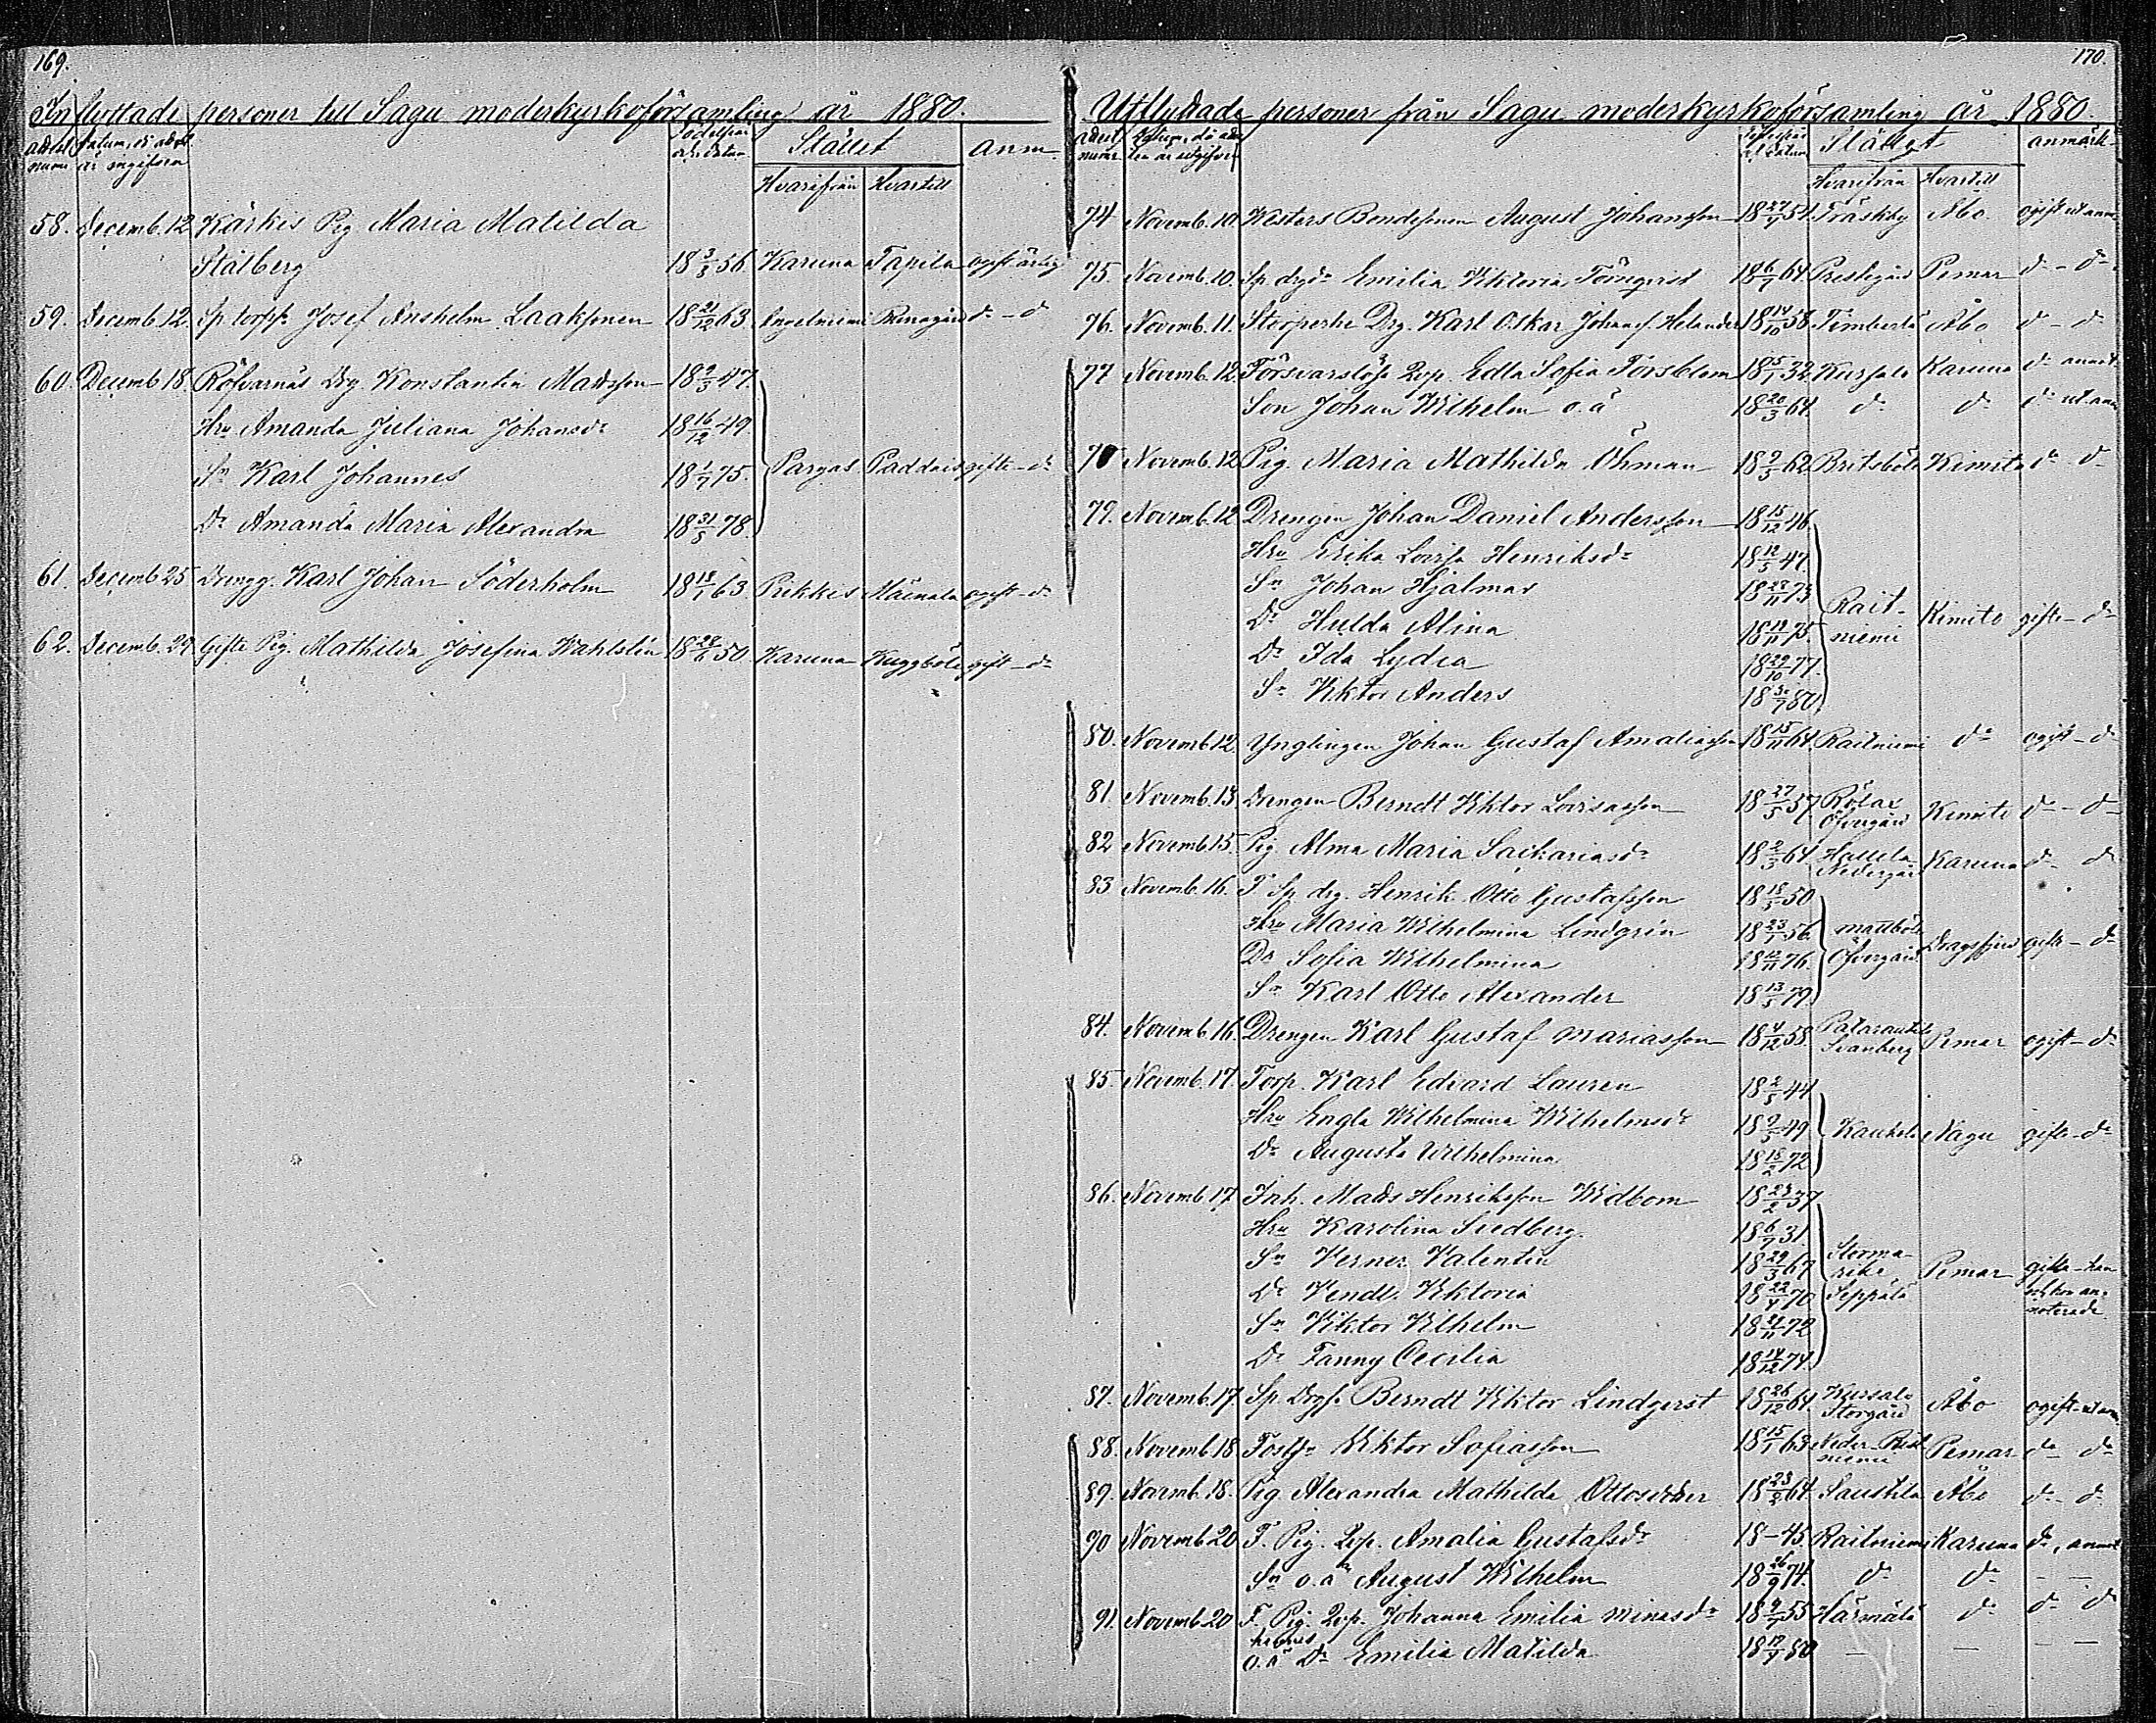 169.
Inflyttade personer till Sagu moderkyrkoförsamling år 1880.
Stället anm.
Hvarifrån Hvartill
58. Decemb. 12 Kärkis Pig Maria Matilda
Stålberg 18 3/3 56. Karuna Tapila ogift ärlig
59. Decemb. 12. Sp. torpp. Josef Anshelm Laaksonen 18 21/12 63 Angelniemi d:o - d:o
60. Decemb. 18. Röfvarnäs Drg Konstantin Madsson 18 9/3 47.
Hru Amanda Juliana Johansdr 18 16/12 49.
Sn Karl Johannes 18 1/7 75. Pargas Paddais gifte - d:o
Dr Amanda Maria Alexandra 18 31/5 78.
61. Decemb. 25 Drengg. Karl Johan Söderholm 18 18/1 63. Pikkis Mäenala ogift - d:o
62. Decemb. 29 Gifte Pig. Mathilda Josefina Wahlstén 18 28/6 50. Karuna Kuggböle gift - d:o
170.
Utflyttade personer från Sagu moderkyrkoförsamling år 1880.
Stället anmärk.
Hvarifrån Hvartill
74 Novemb. 10. Westers Bondesonen August Johansson 18 27/7 54. Träskby Åbo. ogift
75. Novemb. 10. Sp. drgdr Emilia Viktoria Törnqvist 18 6/7 64 Prestgård Pemar d:o - d:o
76. Novemb. 11. Drg. Karl Oskar Johansf. Helander 18 14/10 58. Timberlä Åbo d:o - d:o
77 Novemb. 12. Försvarslösa Qvp. Edla Sofia Forsblom 18 15/1 32. Kursala Karuna d:o
Son Johan Wilhelm o.ä 18 20/3 64. d:o d:o d:o
78 Novemb. 12 Pig. Maria Mathilda Öhman 18 9/3 62 Britsböle Kimito d:o d:o
79. Novemb. 12 Drengen Johan Daniel Andersson 18 15/12 46
Hru Erika Lovisa Henriksdr 18 12/5 47.
Sn Johan Hjalmar 18 28/11 73
Dr Hulda Alina 18 19/11 75. Raitniemi Kimito gifte - d:o
Dr Ida Lydia 18 29/10 77.
Sn Viktor Anders 18 3/7 80.
80. Novemb. 12. Ynglingen Johan Gustaf Amaliasson 18 15/11 64 Raitniemi d:o ogift - d:o
81. Novemb. 13. Drengen Berndt Viktor Lovisasson 18 27/5 57. Rölax Öfvergård Kimito d:o - d:o
82 Novemb. 15. Pig. Alma Maria Saikariasdr 18 2/3 64. Hallela Nedergård Karuna d:o d:o
83 Novemb. 16. F. Sp. drg. Henrik Otto Gustafsson 18 18/5 50
Hru Maria Wilhelmina Lindgrén 18 23/1 56. Mattböle Öfvergård Dragsfjärd gifte - d:o
Dr Sofia Wilhelmina 18 12/11 76.
Sn Karl Otto Alexander 18 13/5 79.
84. Novemb. 16. Drengen Karl Gustaf Mariasson 18 4/12 58. Svanberg Pemar ogift - d:o
85. Novemb. 17. Torp. Karl Edvard Lauren 18 2/5 44
Hru Engla Wilhelmina Wilhelmsdr 18 9/3 49 Kaukola Nagu gifte - d:o
Dr Augusta Wilhelmina 18 18/2 72
86. Novemb. 17 Inh. Mads Henriksson Widbom 18 23/2 37
Hru Karolina Sundberg. 18 6/7 31.
Sn Verner Valentin 18 29/3 67 Storma
Dr Vendla Viktoria 18 22/4 70 Seppälä Pemar gifte - han och hon annoterade
Sn Viktor Wilhelm 18 21/11 72
Dr Fanny Cecilia 18 14/12 74.
87. Novemb. 17. Sp. Drgs. Berndt Viktor Lindqvist 18 26/12 64. Kursala Storgård Åbo ogift
88. Novemb. 18 Viktor Sofiasson 18 15/1 63 Neder Pemar d:o d:o
89. Novemb. 18. Pig. Alexandra Mathilda Ottosdotter 18 23/2 64 Saustila Åbo d:o - d:o
90 Novemb. 20 F. Pig. Qvp. Amalia Gustafsdr 18 - 45. Raitniemi Karuna d:o,
Sn o.ä August Wilhelm 18 26/9 74. d:o d:o — —
91. Novemb. 20 F. Pig. Qvp. Johanna Emilia Minasdr 18 9/7 55 Härmälä d:o d:o d:o
o.ä Dr Emilia Matilda 18 17/7 80 — — — —